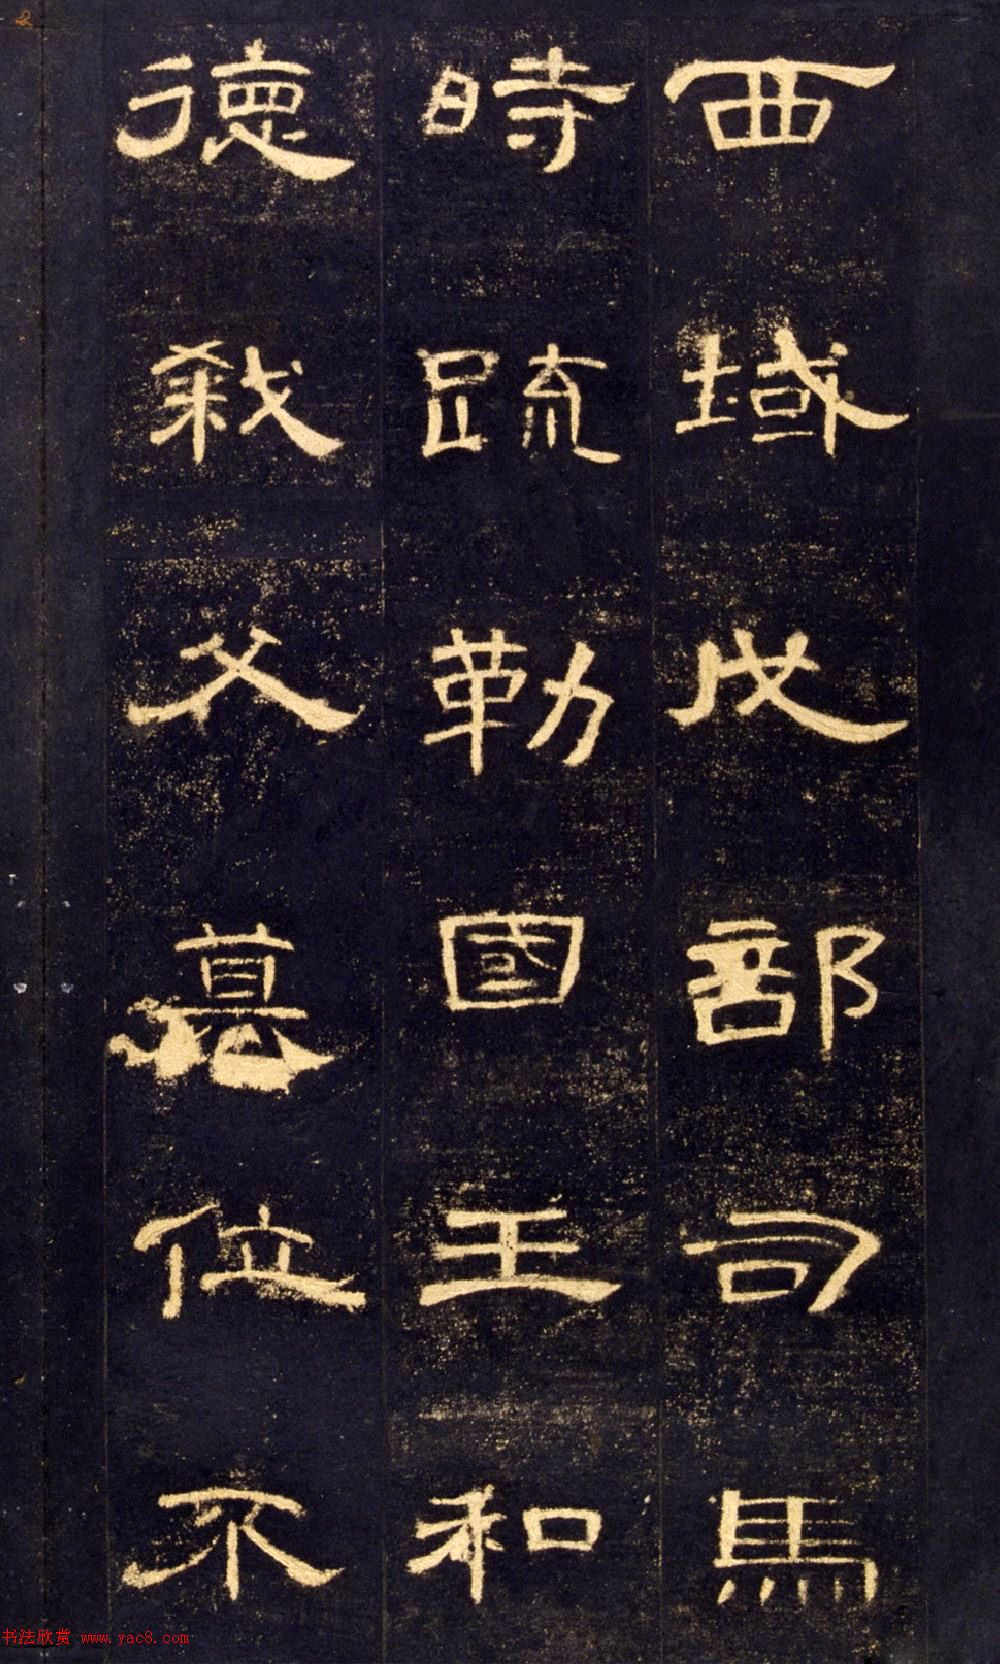 西域戊部司馬
時疏勒國王和
德弑父篡位不
书法欣赏 www.yac8.com
2